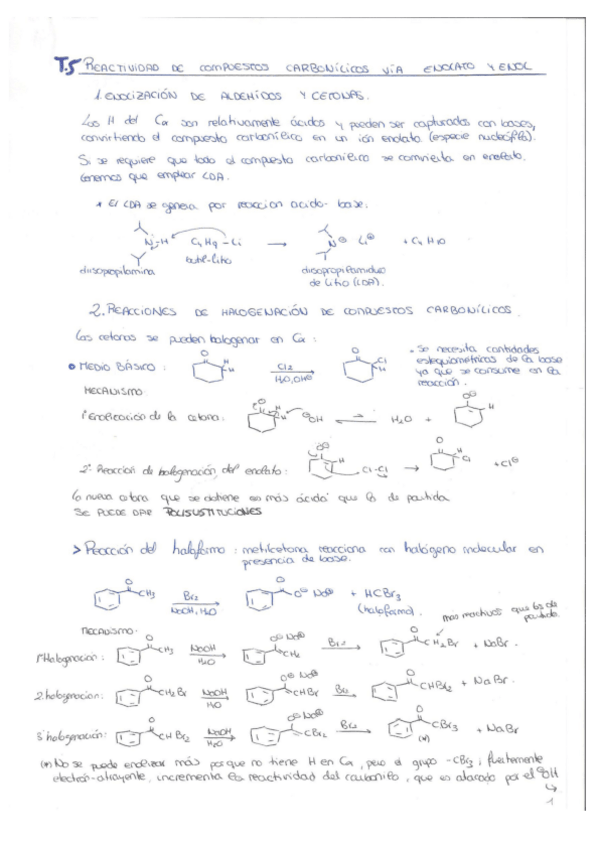 T.5 REACTIVIDAD DE COMPUESTOS CARBONÍLICOS VÍA ENOLATO Y ENOL
1. ENOLIZACIÓN DE ALDEHÍDOS Y CETONAS.
Los H del Cα son relativamente ácidos y pueden ser capturados con bases,
convirtiendo el compuesto carbonílico en un ión enolato (especie nucleófila).
Si se requiere que todo el compuesto carbonílico se convierta en enolato,
tenemos que emplear LDA.
* El LDA se genera por reacción ácido-base:
N-H C4H9-Li → N⊖ Li⊕ + C4H10
diisopropilamina butil-litio diisopropilamiduro
de litio (LDA).
2. REACCIONES DE HALOGENACIÓN DE COMPUESTOS CARBONÍLICOS.
Las cetonas se pueden halogenar en Cα:
• MEDIO BÁSICO: O H H Cl2 H2O, OH⊖ O Cl H
• Se necesita cantidades
estequiométricas de la base
ya que se consume en la
reacción.
MECANISMO:
1º Enolización de la cetona: O H H ⊖OH H2O + O⊖ H
2º Reacción de halogenación del enolato: O⊖ H Cl-Cl → O H Cl + Cl⊖
La nueva cetona que se obtiene es más ácida que la de partida
SE PUEDE DAR POLISUSTITUCIONES
> Reacción del haloformo: metilcetona reacciona con halógeno molecular en
presencia de base.
O CH3 Br2 NaOH, H2O O O⊖ Na⊕ + HCBr3
(haloformo).
más reactivos que los de
partida.
MECANISMO:
1ª Halogenación: O CH3 NaOH H2O O⊖ Na⊕ CH2 Br2 O CH2Br + NaBr.
2ª halogenación: O CH2Br NaOH H2O O⊖ Na⊕ CHBr Br2 O CHBr2 + NaBr.
3ª halogenación: O CHBr2 NaOH H2O O⊖ Na⊕ CBr2 Br2 O CBr3 (*) + NaBr
(*) No se puede enolizar más porque no tiene H en Cα, pero el grupo -CBr3, fuertemente
electrón-atrayente, incrementa la reactividad del carbonilo, que es atacado por el ⊖OH
↳
1